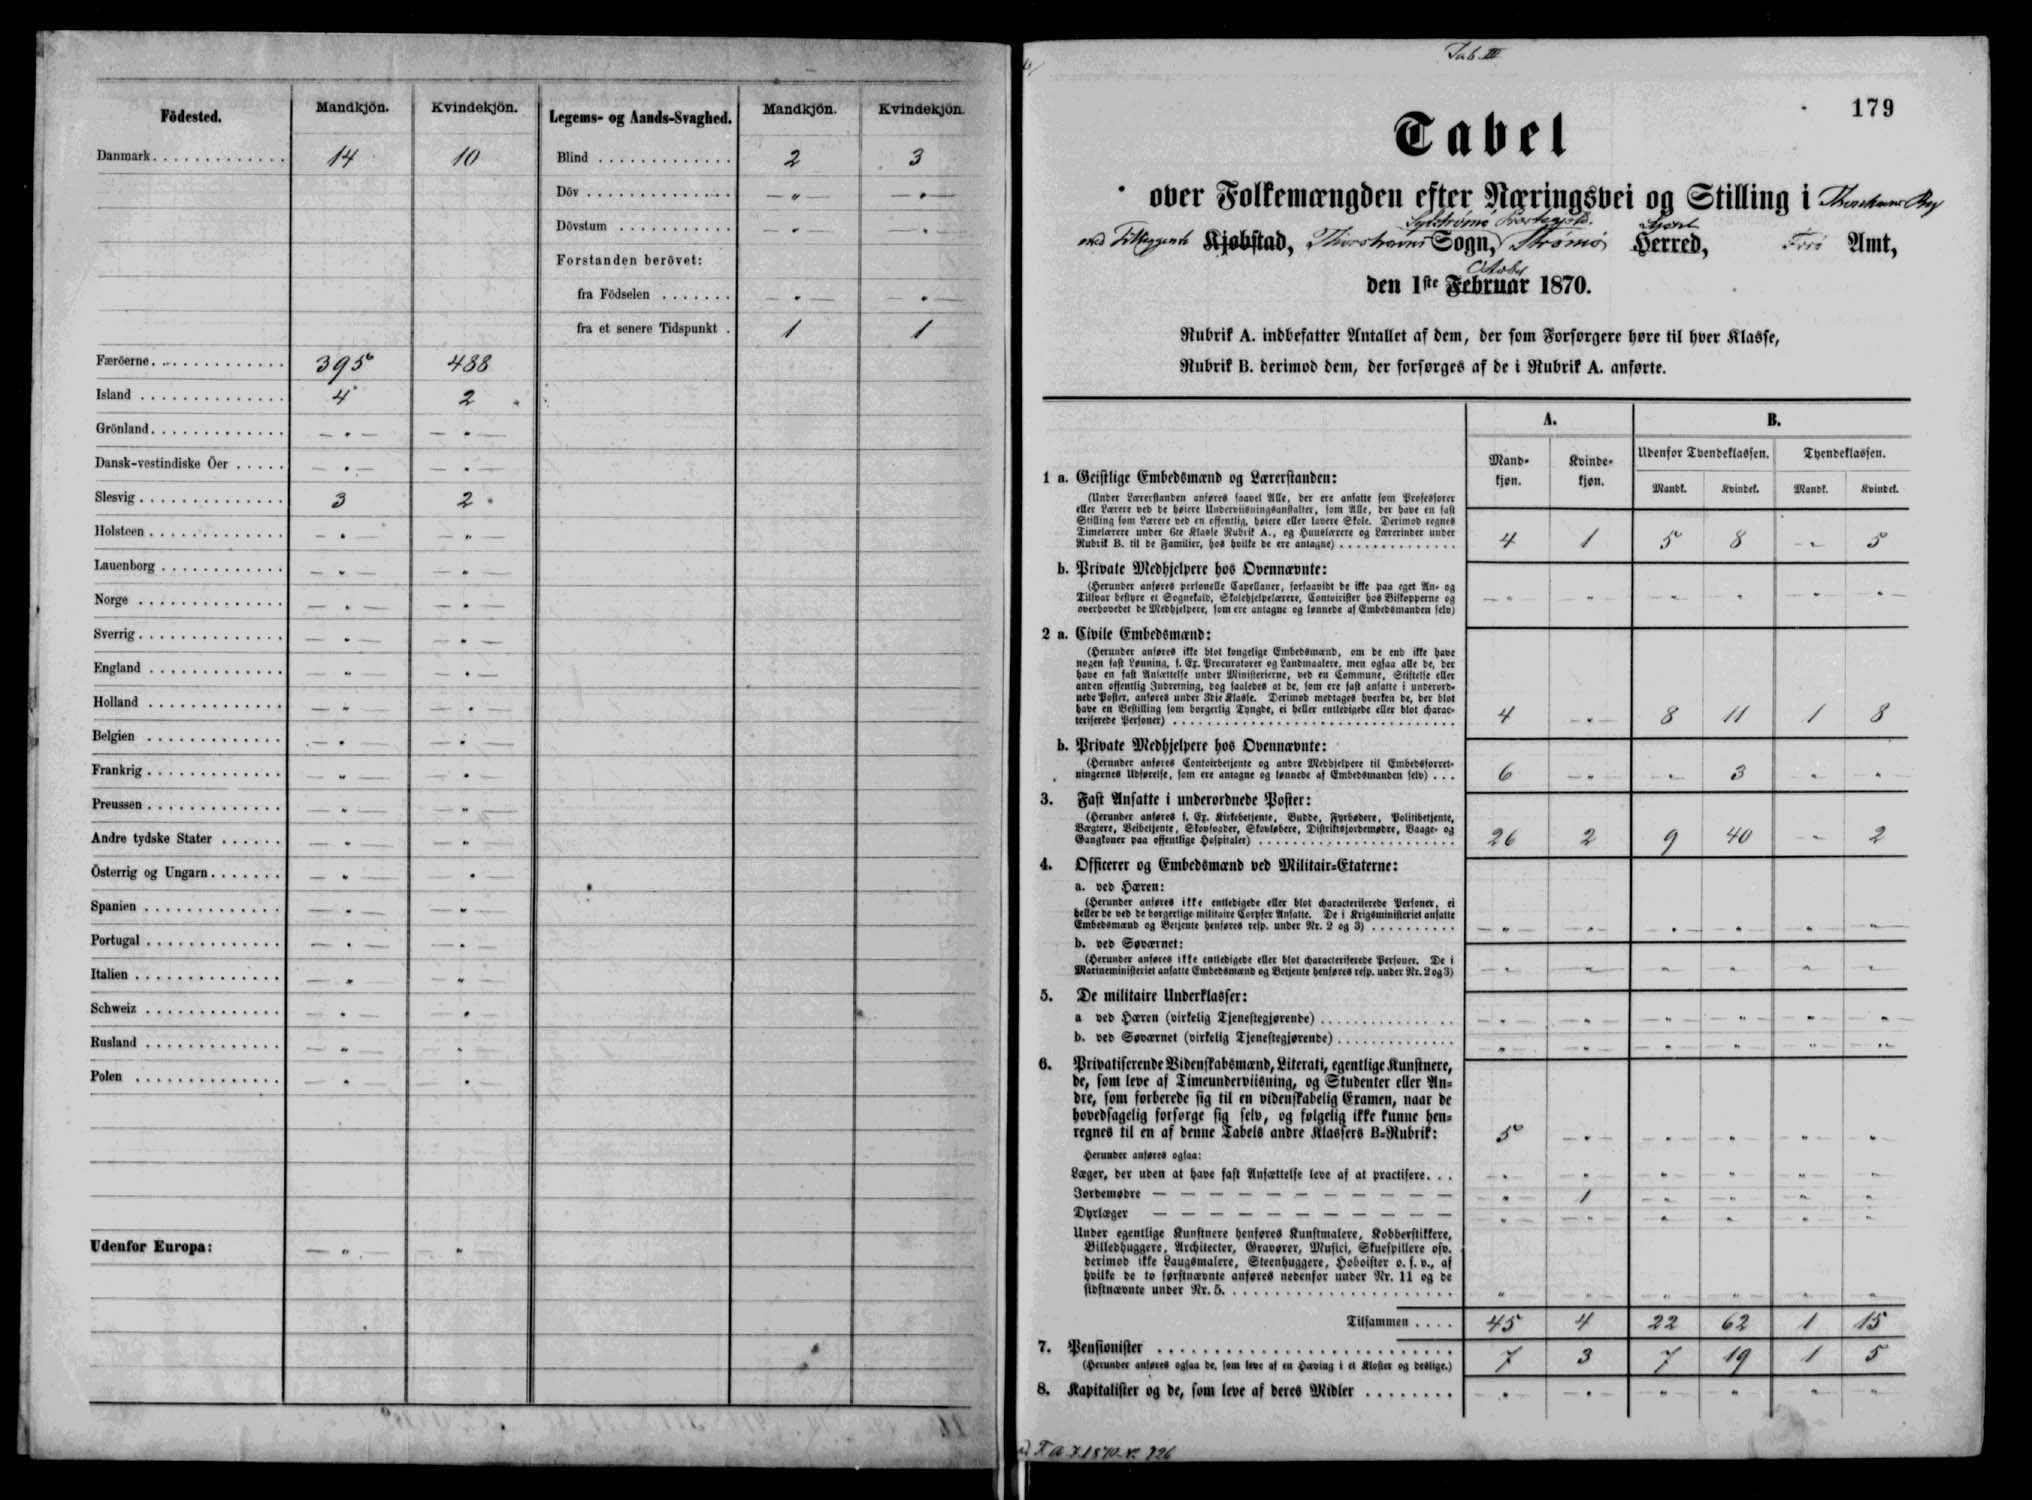 Födested. Mandkjön. Kvindekjön. Legems- og Aands-Svaghed. Mandkjön. Kvindekjön.
Danmark 14 10 Blind 2 3
Döv — " — — " —
Dövstum — " — — " —
Forstanden berövet:
fra Födselen — " — — " —
fra et senere Tidspunkt . 1 1
Færöerne 395 488
Island 4 2
Grönland — " — — " —
Dansk-vestindiske Öer — " — — " —
Slesvig 3 2
Holsteen — " — — " —
Lauenborg — " — — " —
Norge — " — — " —
Sverrig — " — — " —
England — " — — " —
Holland — " — — " —
Belgien — " — — " —
Frankrig — " — — " —
Preussen — " — — " —
Andre tydske Stater — " — — " —
Österrig og Ungarn — " — — " —
Spanien — " — — " —
Portugal — " — — " —
Italien — " — — " —
Schweiz — " — — " —
Rusland — " — — " —
Polen — " — — " —
Udenfor Europa: — " — — " —
Tab. III
179
Tabel
over Folkemængden efter Næringsvei og Stilling i Thorshavns By
med Tilliggende Kjøbstad, Thorshavns Sogn, Strømø Syssel Herred, Færø Amt,
den 1ste October Februar 1870.
Rubrik A. indbefatter Antallet af dem, der som Forsørgere høre til hver Klasse,
Rubrik B. derimod dem, der forsørges af de i Rubrik A. anførte.
A. B.
Mandkjøn. Kvindekjøn. Udenfor Tyendeklassen. Tyendeklassen.
Mandk. Kvindek. Mandk. Kvindek.
1 a. Geistlige Embedsmænd og Lærerstanden:
(Under Lærerstanden anføres saavel Alle, der ere ansatte som Professorer
eller Lærere ved de høiere Underviisningsanstalter, som Alle, der have en fast
Stilling som Lærere ved en offentlig, høiere eller lavere Skole. Derimod regnes
Timelærere under 6te Klasse Rubrik A., og Huuslærere og Lærerinder under
Rubrik B. til de Familier, hos hvilke de ere antagne) 4 1 5 8 — " 5
b. Private Medhjelpere hos Ovennævnte:
(Herunder anføres personelle Capellaner, forsaavidt de ikke paa eget An- og
Tilsvar bestyre et Sognekald, Skolehjelpelærere, Contoirister hos Biskopperne og
overhovedet de Medhjelpere, som ere antagne og lønnede af Embedsmanden selv) " " " " " "
2 a. Civile Embedsmænd:
(Herunder anføres ikke blot kongelige Embedsmænd, om de end ikke have
nogen fast Lønning, f. Ex. Procuratorer og Landmaalere, men ogsaa alle de, der
have en fast Ansættelse under Ministerierne, ved en Commune, Stiftelse eller
anden offentlig Indretning, dog saaledes at de, som ere fast ansatte i underord-
nede Poster, anføres under 3die Klasse. Derimod medtages hverken de, der blot
have en Bestilling som borgerlig Tyngde, ei heller entledigede eller blot charac-
teriserede Personer) 4 " 8 11 1 8
b. Private Medhjelpere hos Ovennævnte:
(Herunder anføres Contoirbetjente og andre Medhjelpere til Embedsforret-
ningernes Udførelse, som ere antagne og lønnede af Embedsmanden selv) 6 " " 3 " "
3. Fast Ansatte i underordnede Poster:
(Herunder anføres f. Ex. Kirkebetjente, Budde, Fyrbødere, Politibetjente,
Vægtere, Veibetjente, Skovfogder, Skovløbere, Distriktsjordemødre, Vaage- og
Gangkoner paa offentlige Hospitaler) 26 2 9 40 " 2
4. Officerer og Embedsmænd ved Militair-Etaterne:
a. ved Hæren:
(Herunder anføres ikke entledigede eller blot characteriserede Personer, ei
heller de ved de borgerlige militaire Corpser Ansatte. De i Krigsministeriet ansatte
Embedsmænd og Betjente henføres resp. under Nr. 2 og 3) " " " " " "
b. ved Søværnet:
(Herunder anføres ikke entledigede eller blot characteriserede Personer. De i
Marineministeriet ansatte Embedsmænd og Betjente henføres resp. under Nr. 2 og 3) " " " " " "
5. De militaire Underklasser:
a ved Hæren (virkelig Tjenestegjørende) " " " " " "
b. ved Søværnet (virkelig Tjenestegjørende) " " " " " "
6. Privatiserende Videnskabsmænd, Literati, egentlige Kunstnere,
de, som leve af Timeunderviisning, og Studenter eller An-
dre, som forberede sig til en videnskabelig Examen, naar de
hovedsagelig forsørge sig selv, og følgelig ikke kunne hen-
regnes til en af denne Tabels andre Klassers B-Rubrik: 5 " " " " "
Herunder anføres ogsaa:
Læger, der uden at have fast Ansættelse leve af at practisere. " " " " " "
Jordemødre — — — " 1 " " " "
Dyrlæger — — — " " " " " "
Under egentlige Kunstnere henføres Kunstmalere, Kobberstikkere,
Billedhuggere, Architecter, Gravører, Musici, Skuespillere osv.
derimod ikke Laugsmalere, Steenhuggere, Hoboister o. s. v., af
hvilke de to førstnævnte anføres nedenfor under Nr. 11 og de
sidstnævnte under Nr. 5. " " " " " "
Tilsammen 45 4 22 62 1 15
7. Pensionister 7 3 7 19 1 5
(Herunder anføres ogsaa de, som leve af en Hæving i et Kloster og deslige.)
8. Kapitalister og de, som leve af deres Midler " " " " " "